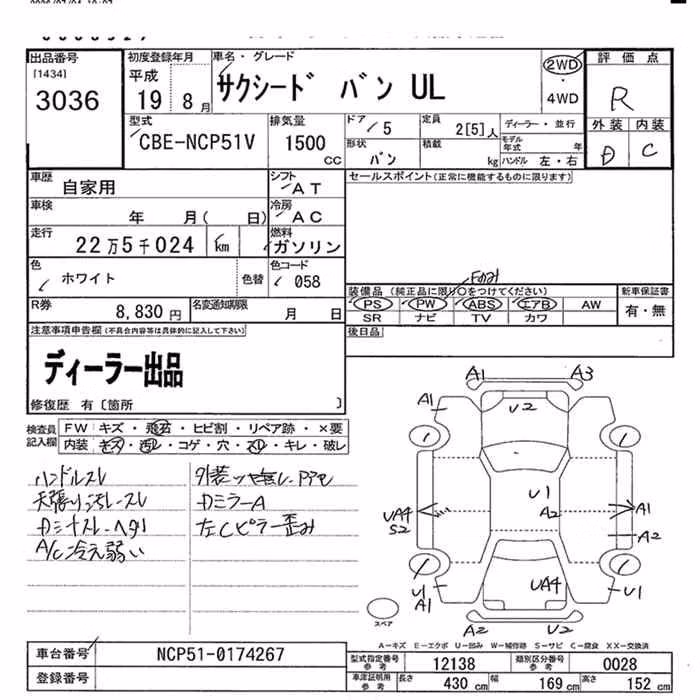 出品番号
[1434]
3036
初度登録年月
平成
19 年 8 月
車名・グレード
サクシード バン UL
2WD
・
4WD
評価点
R
外装 内装
D C
型式
CBE-NCP51V
排気量
1500
CC
ドア
5
形状
バン
定員
2[5]人
積載
kg
ディーラー・並行
モデル年式 年
ハンドル 左・右
車歴
自家用
シフト
AT
セールスポイント(正常に機能するものに限ります)
車検
年 月( 日)
冷房
AC
走行
22万5千024 km
燃料
ガソリン
色
ホワイト
色替
色コード
058
装備品(純正品に限り○をつけてください)
PS PW ABS エアB AW
SR ナビ TV カワ
新車保証書
有・無
R券
8,830円
名変通知期限
月 日
後日品
注意事項申告欄(不具合内容等は具体的に記入して下さい)
ディーラー出品
修復歴 有〔箇所 〕
検査員
記入欄
FW キズ・飛石・ヒビ割・リペア跡・×要
内装 キズ・汚レ・コゲ・穴・スレ・キレ・破レ
ハンドルスレ
天張りヨゴレ・スレ
Dシートスレ・ヘタリ
A/C冷え弱い
DミラーA
左Cピラー歪み
A1 A3
A1 U2
U1
A2
UA4
S2
A1
A2
UA4
U1
A1
U1
A2 U2
スペア
A-キズ E-エクボ U-凹み W-補修跡 S-サビ C-腐食 XX-交換済
車台番号
NCP51-0174267
登録番号
型式指定番号
参考
12138
類別区分番号
参考
0028
車庫証明用
参考
長さ 430 cm 幅 169 cm 高さ 152 cm